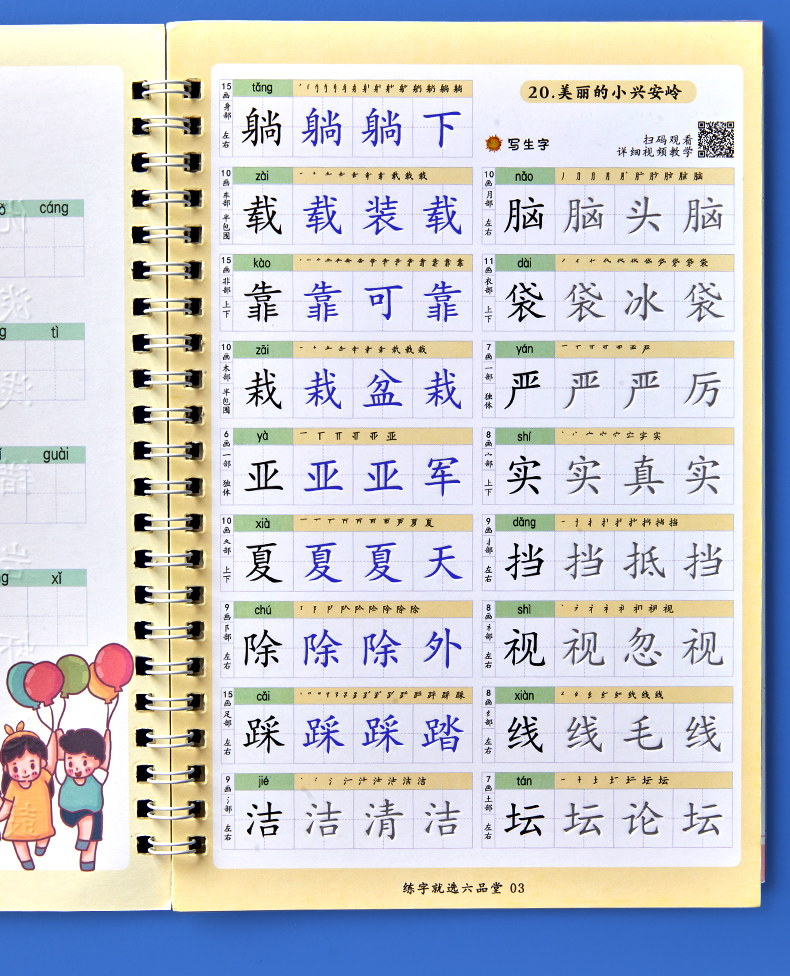 cáng
tì
guài
xǐ
15画 身部 左右
tǎng
躺 躺 躺 下
10画 车部 半包围
zài
载 载 装 载
15画 非部 上下
kào
靠 靠 可 靠
10画 木部 半包围
zāi
栽 栽 盆 栽
6画 一部 独体
yà
亚 亚 亚 军
10画 夂部 上下
xià
夏 夏 夏 天
9画 阝部 左右
chú
除 除 除 外
15画 足部 左右
cǎi
踩 踩 踩 踏
9画 氵部 左右
jié
洁 洁 清 洁
20.美丽的小兴安岭
写生字
扫码观看
详细视频教学
10画 月部 左右
nǎo
脑 脑 头 脑
11画 衣部 上下
dài
袋 袋 冰 袋
7画 一部 独体
yán
严 严 严 厉
8画 宀部 上下
shí
实 实 真 实
9画 扌部 左右
dǎng
挡 挡 抵 挡
8画 礻部 左右
shì
视 视 忽 视
8画 纟部 左右
xiàn
线 线 毛 线
7画 土部 左右
tán
坛 坛 论 坛
练字就选六品堂 03